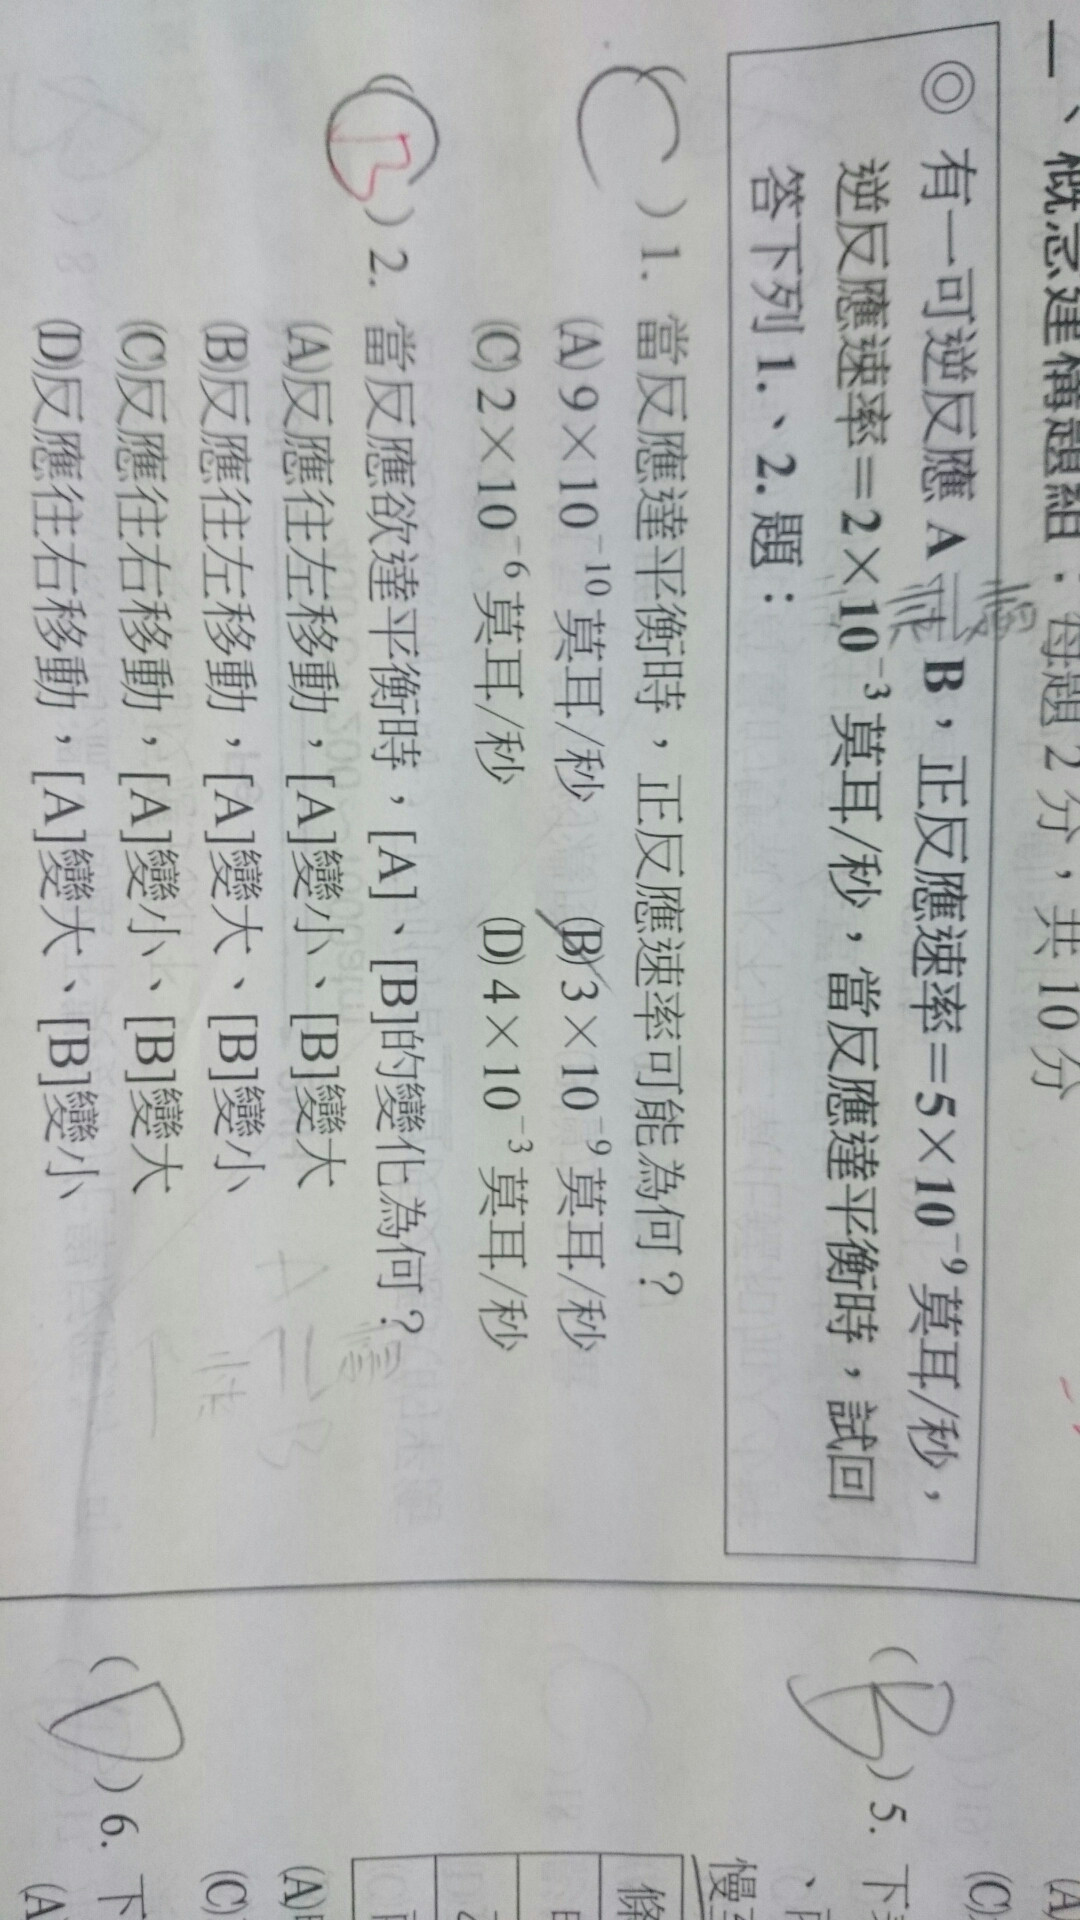 一、概念建構題組：每題 2 分，共 10 分
◎ 有一可逆反應 A ⇌ B，正反應速率＝5×10⁻⁹莫耳/秒，
慢
快
逆反應速率＝2×10⁻³莫耳/秒，當反應達平衡時，試回
答下列 1.、2.題：
( C ) 1. 當反應達平衡時，正反應速率可能為何？
(A) 9×10⁻¹⁰莫耳/秒 (B) 3×10⁻⁹莫耳/秒
(C) 2×10⁻⁶莫耳/秒 (D) 4×10⁻³莫耳/秒
( B ) 2. 當反應欲達平衡時，[A]、[B]的變化為何？
(A)反應往左移動，[A]變小、[B]變大
(B)反應往左移動，[A]變大、[B]變小
(C)反應往右移動，[A]變小、[B]變大
(D)反應往右移動，[A]變大、[B]變小
慢
A ⇌ B
快
(A)
(C)
( B ) 5. 下
慢
條
(A)
(C)
( D ) 6. 下
(A)